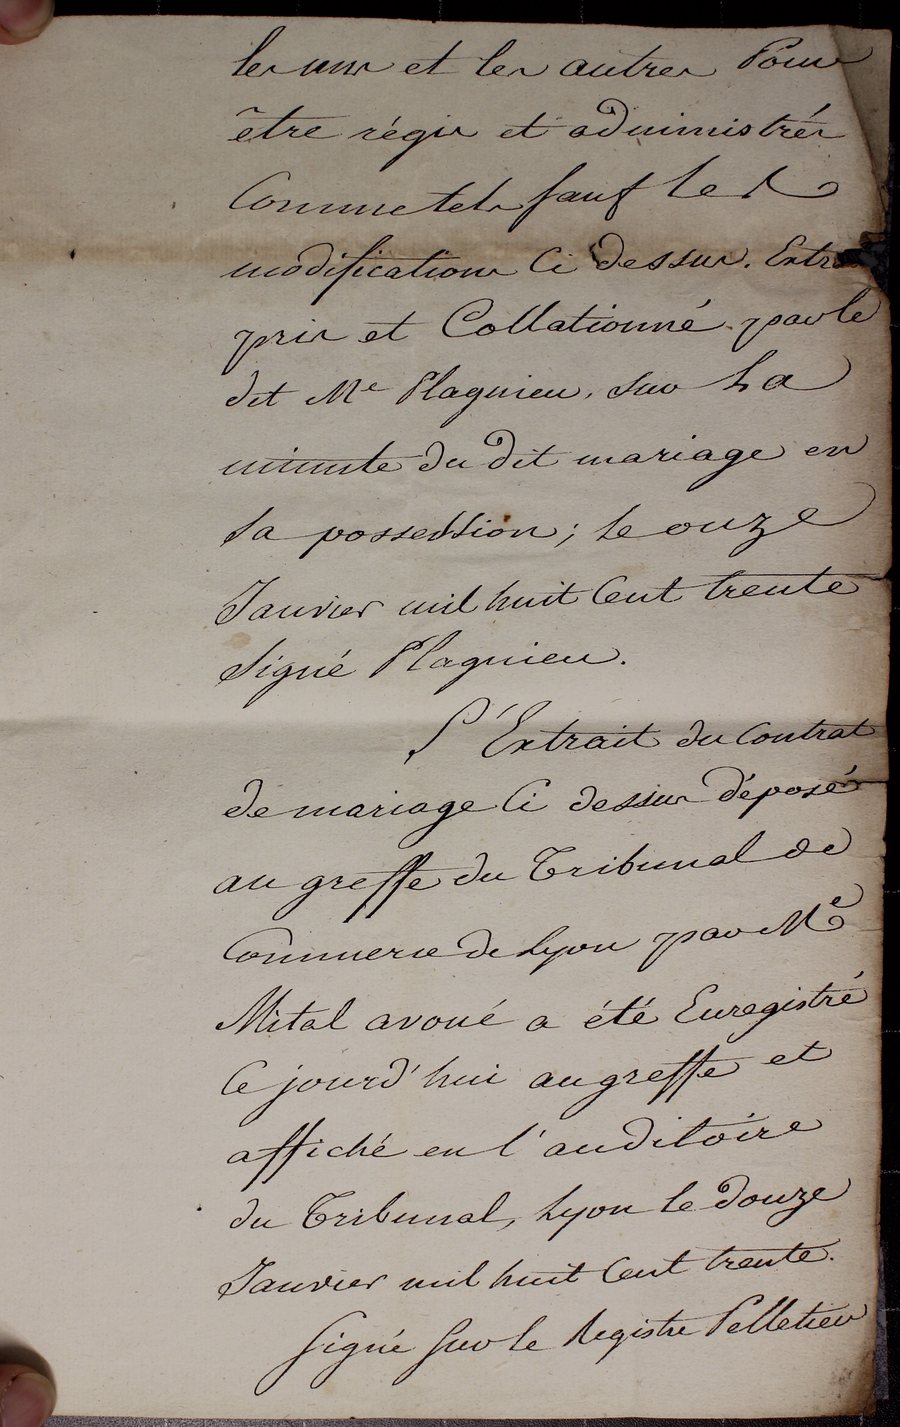 les uns et les autres Pour
être régis et administrés
Comme tels sauf les
modifications Ci dessus. Extra
pris et Collationné par le
dit Me Plagnieu, sur La
minute du dit mariage en
sa possession; le onze
Janvier mil huit Cent trente
signé Plagnieu.
L'Extrait du Contrat
de mariage Ci dessus déposé
au greffe du Tribunal de
Commerce de Lyon par Me
Mital avoué a été Enregistré
Ce jourd'hui au greffe et
affiché en l'auditoire
du Tribunal, Lyon le douze
Janvier mil huit Cent trente.
signé sur le Registre Pelletier